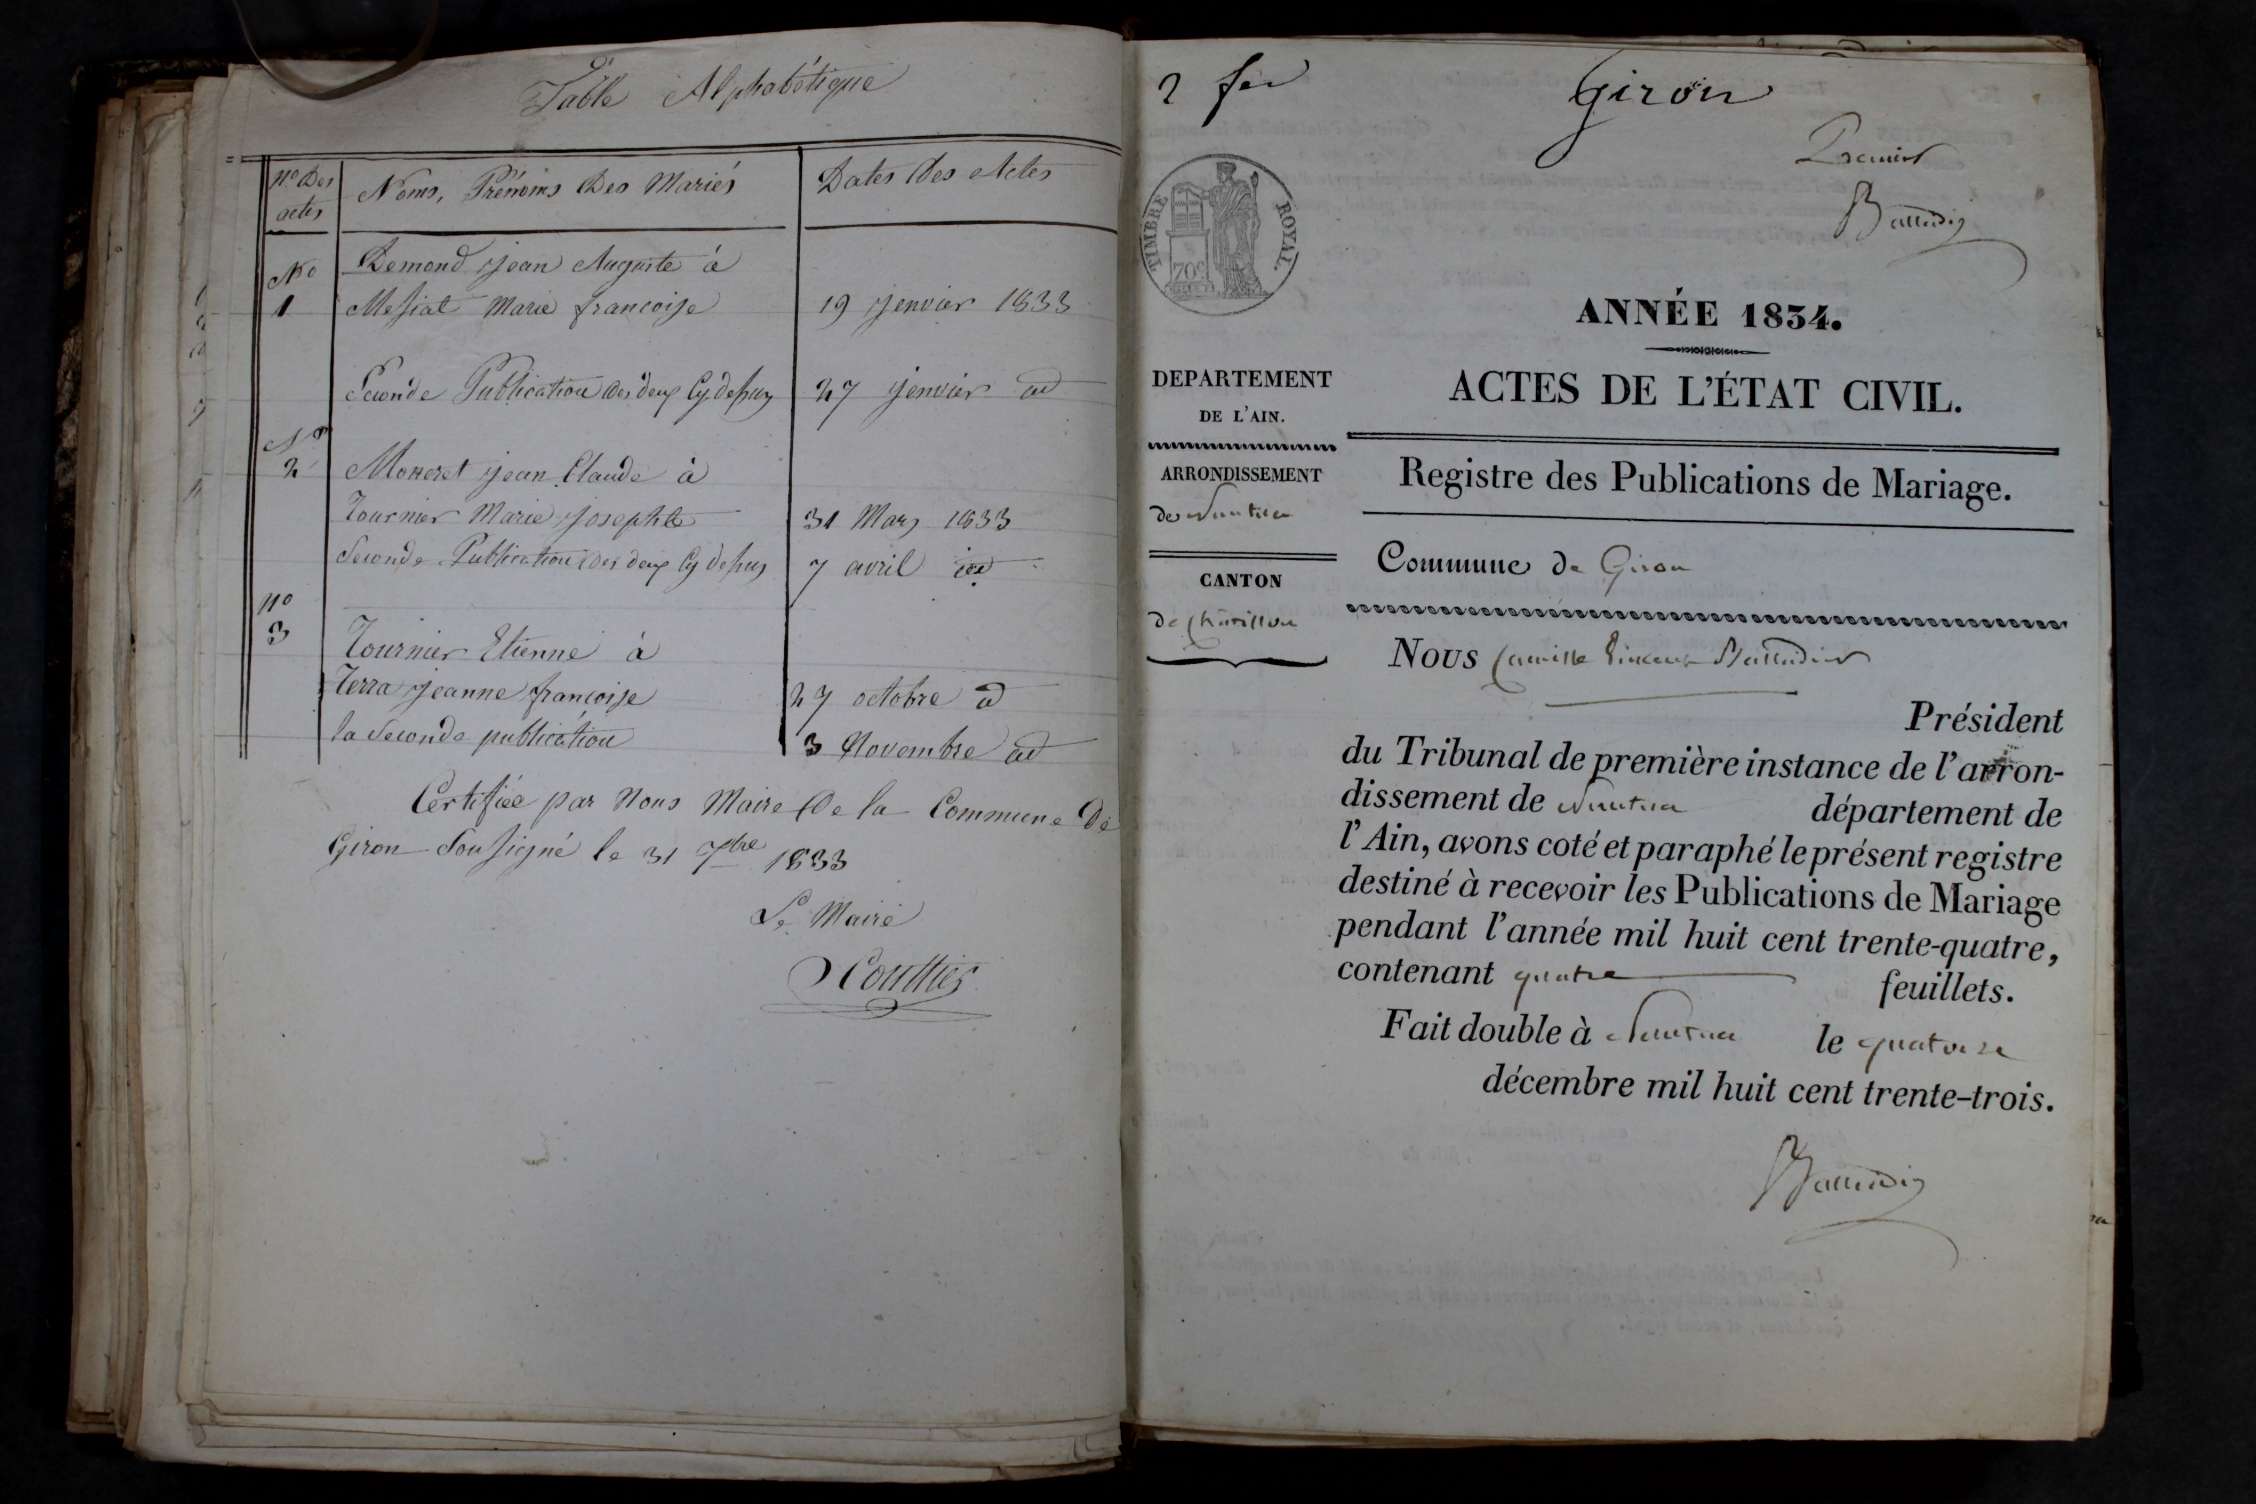 Table Alphabétique
No Des actes
Noms, Prénoms Des Mariés
Dates Des Actes
No 1
Demond jean Auguste à
Messiat Marie françoise
19 jenvier 1833
Seconde Publication des deux Cy dessus
27 jenvier
No 2
Moneret jean Claude à
Tournier Marie josephte
31 Mars 1833
Seconde Publication des deux Cy dessus
7 avril
no 3
Tournier Etienne à
Terra jeanne françoise
27 octobre
la Seconde publication
3 Novembre
Certifiée par Nous Maire De la Commune De
Giron Soussigné le 31 7bre 1833
Le Maire
2 fer
Giron
Premier
TIMBRE ROYAL.
70c
ANNÉE 1834.
ACTES DE L'ÉTAT CIVIL.
Registre des Publications de Mariage.
DEPARTEMENT
DE L'AIN.
ARRONDISSEMENT
de Nantua
CANTON
de Châtillon
Commune de Giron
Nous Camille Vincent
Président
du Tribunal de première instance de l'arron-
dissement de Nantua département de
l'Ain, avons coté et paraphé le présent registre
destiné à recevoir les Publications de Mariage
pendant l'année mil huit cent trente-quatre,
contenant quatre feuillets.
Fait double à Nantua le quatorze
décembre mil huit cent trente-trois.